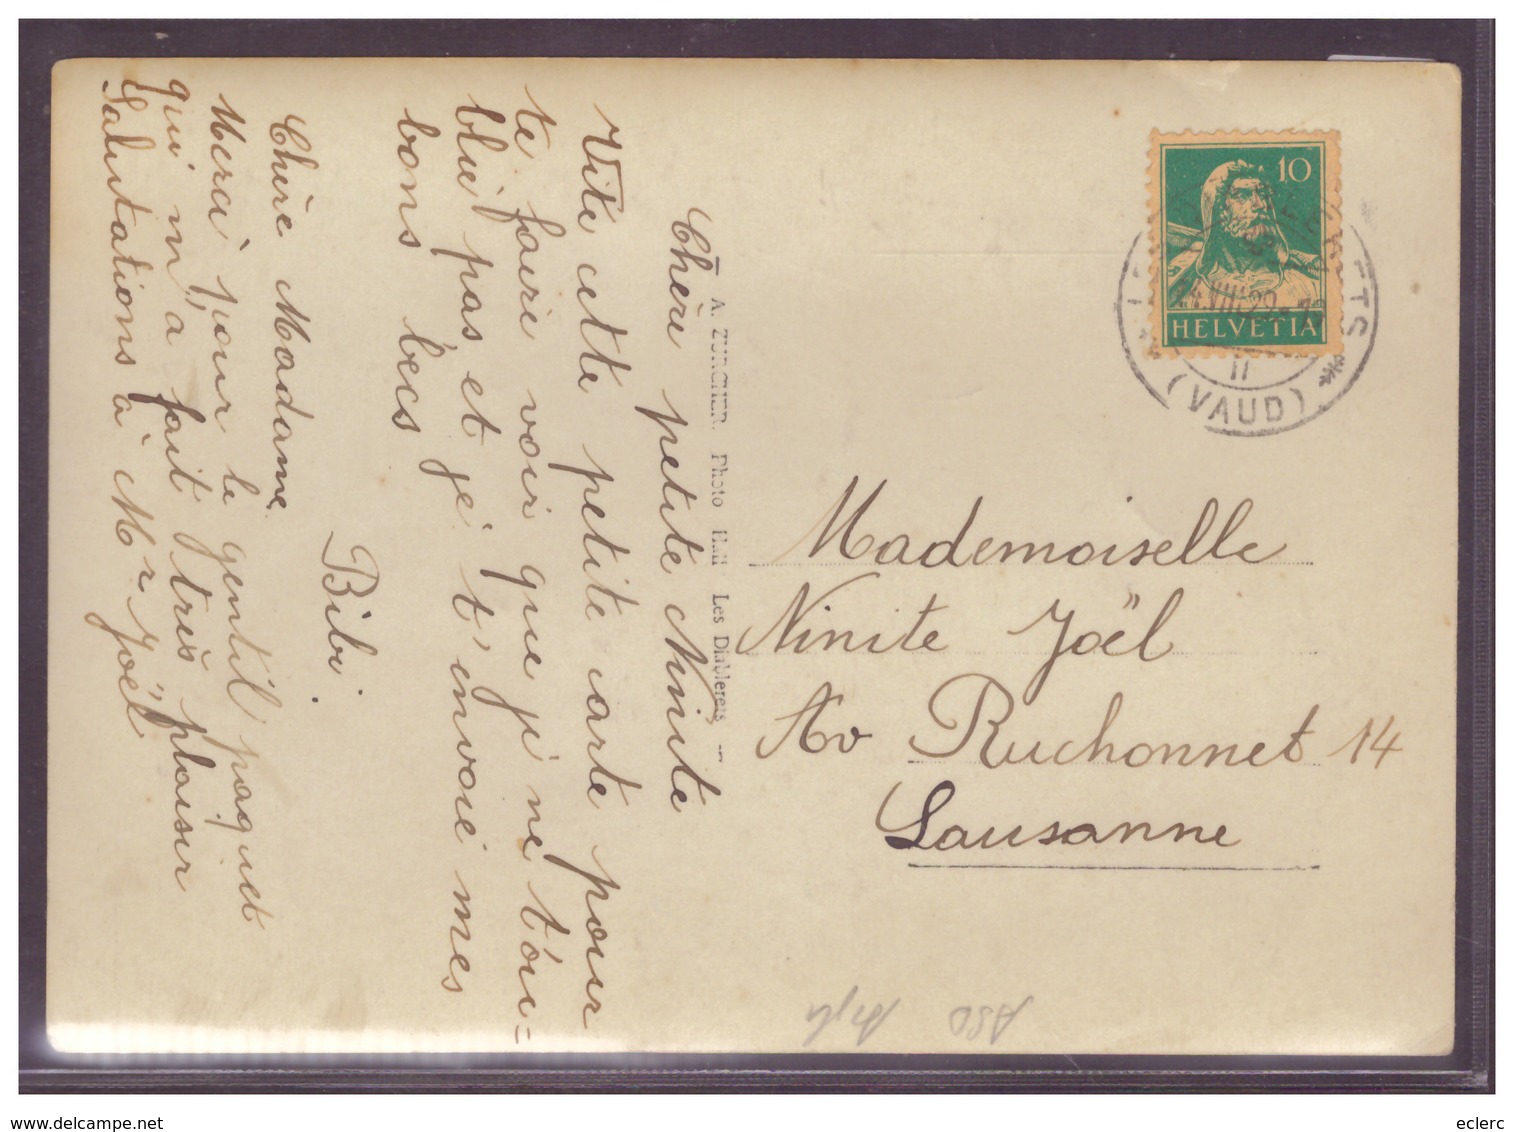 Chère petite Ninite
Vite cette petite carte pour
te faire voir que je ne t'ou=
blie pas et je t'envoie mes
bons becs
Bibi.
Chère Madame.
Merci pour le gentil paquet
qui m'a fait très plaisir
Salutations à Mr Joël
A. ZURCHER. Photo Hall Les Diablerets
10
HELVETIA
(VAUD)
Mademoiselle
Ninite Joël
Av Ruchonnet 14
Lausanne
delcampe.net
eclerc